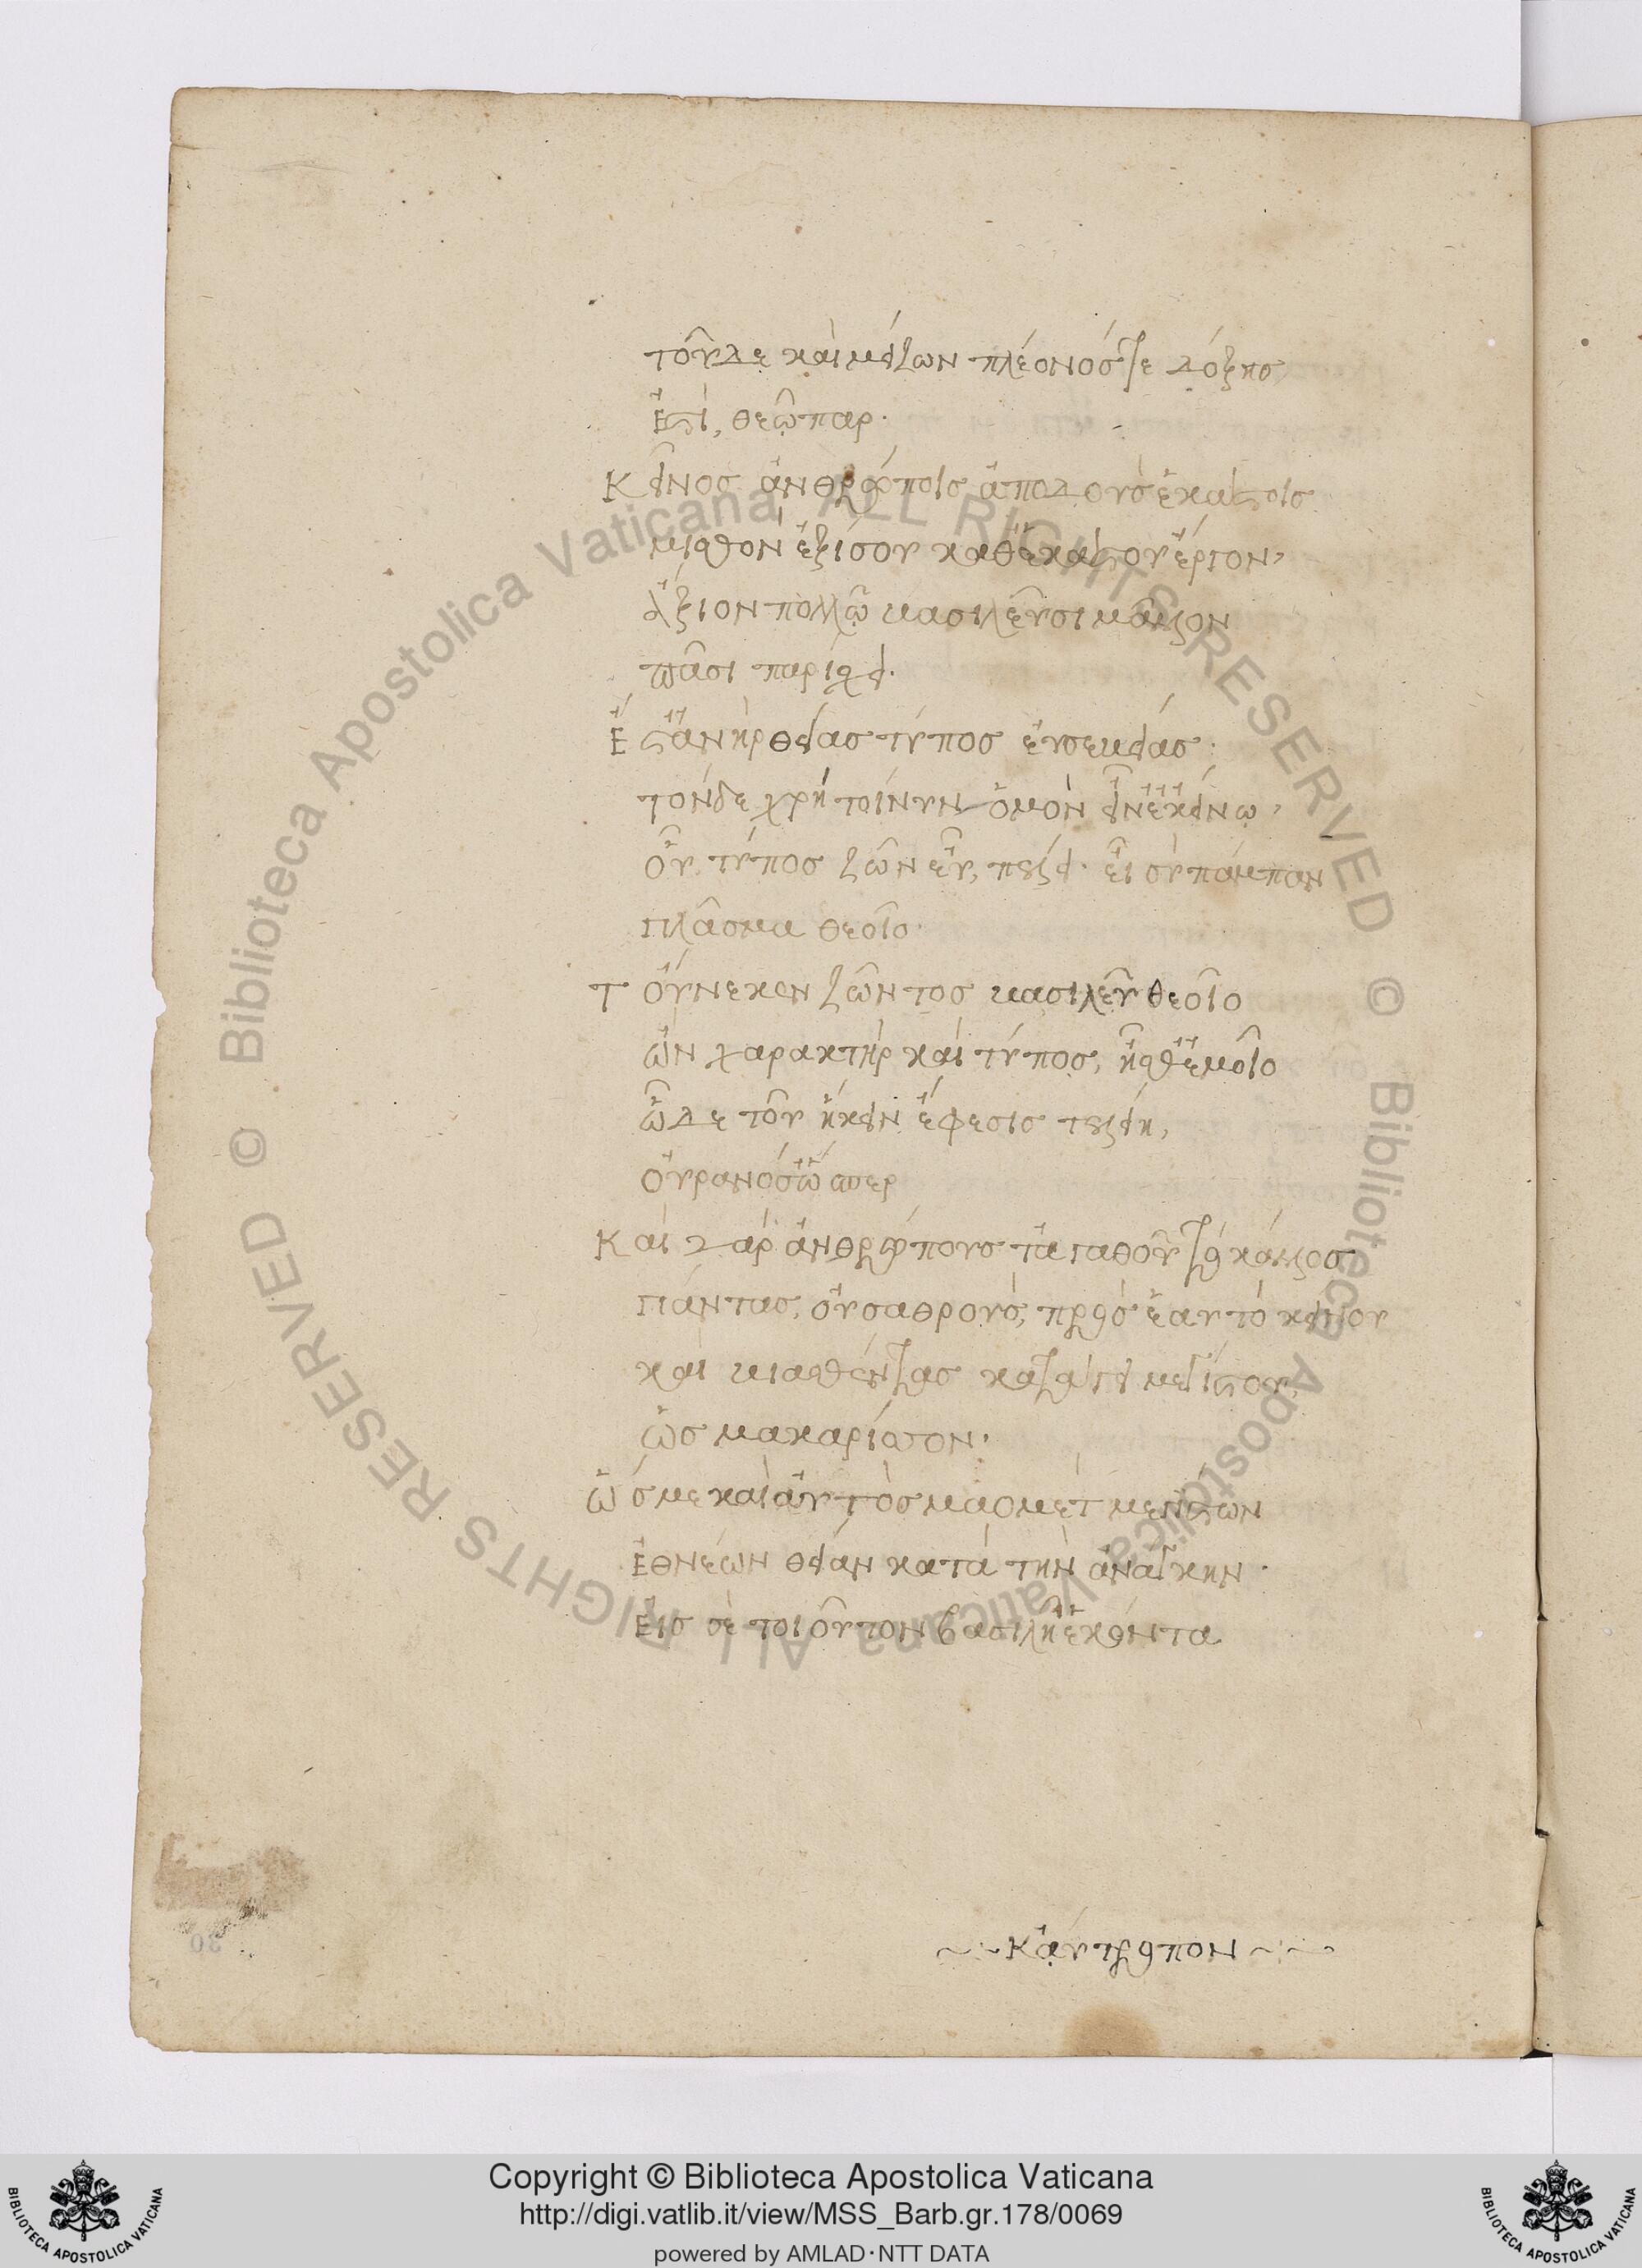 τοῦδε καὶ μείζων πλέονός τε δόξης
ἐστὶ, θεῷ παρ.
Κεῖνος ἀνθρώποις ἀποδοὺς ἑκάστοις
μισθὸν ἐξίσου καθ' ἕκαστον ἔργον,
ἄξιον πολλῷ βασιλεῦσι μᾶλλον
πᾶσι παρίσχει.
Ἔστ' ἀνὴρ θείας τύπος εὐσεβείας.
τόνδε χρὴ τοίνυν ὁμὸν εἶν' ἐκείνῳ,
οὗ τύπος ζῶν εὖ, πέλει. εἶ σὺ πάμπαν
πλᾶσμα θεοῖο.
Τοὔνεκεν ζῶντος βασιλεῦ θεοῖο
ὢν χαρακτὴρ καὶ τύπος, ᾖσθ' ἐμοῖο
ὧδε τοῦ ἥκειν ἔφεσις
οὐρανὸς ὥσπερ
Καὶ γὰρ ἀνθρώπους τἀγαθοῦ τὸ κάλλος
πάντας, οὓς ἀθροῦς, πρὸς ἑαυτὸ κείνου
καὶ βιασθέντας κατάγει μεγίστου,
ὡς μακάριστον.
Ὥς με καὶ αὐτὸς μάομετ μεγίστων
ἐθνέων θείαν κατὰ τὴν ἀνάγκην.
Εἰς σὲ τοιοῦτον βασιλῆ' ἑκόντα
~·~ κᾀυτρόπον ~·~
30
Copyright © Biblioteca Apostolica Vaticana
http://digi.vatlib.it/view/MSS_Barb.gr.178/0069
powered by AMLAD·NTT DATA
BIBLIOTECA APOSTOLICA VATICANA
BIBLIOTECA APOSTOLICA VATICANA
© Biblioteca Apostolica Vaticana ALL RIGHTS RESERVED
© Biblioteca Apostolica Vaticana ALL RIGHTS RESERVED